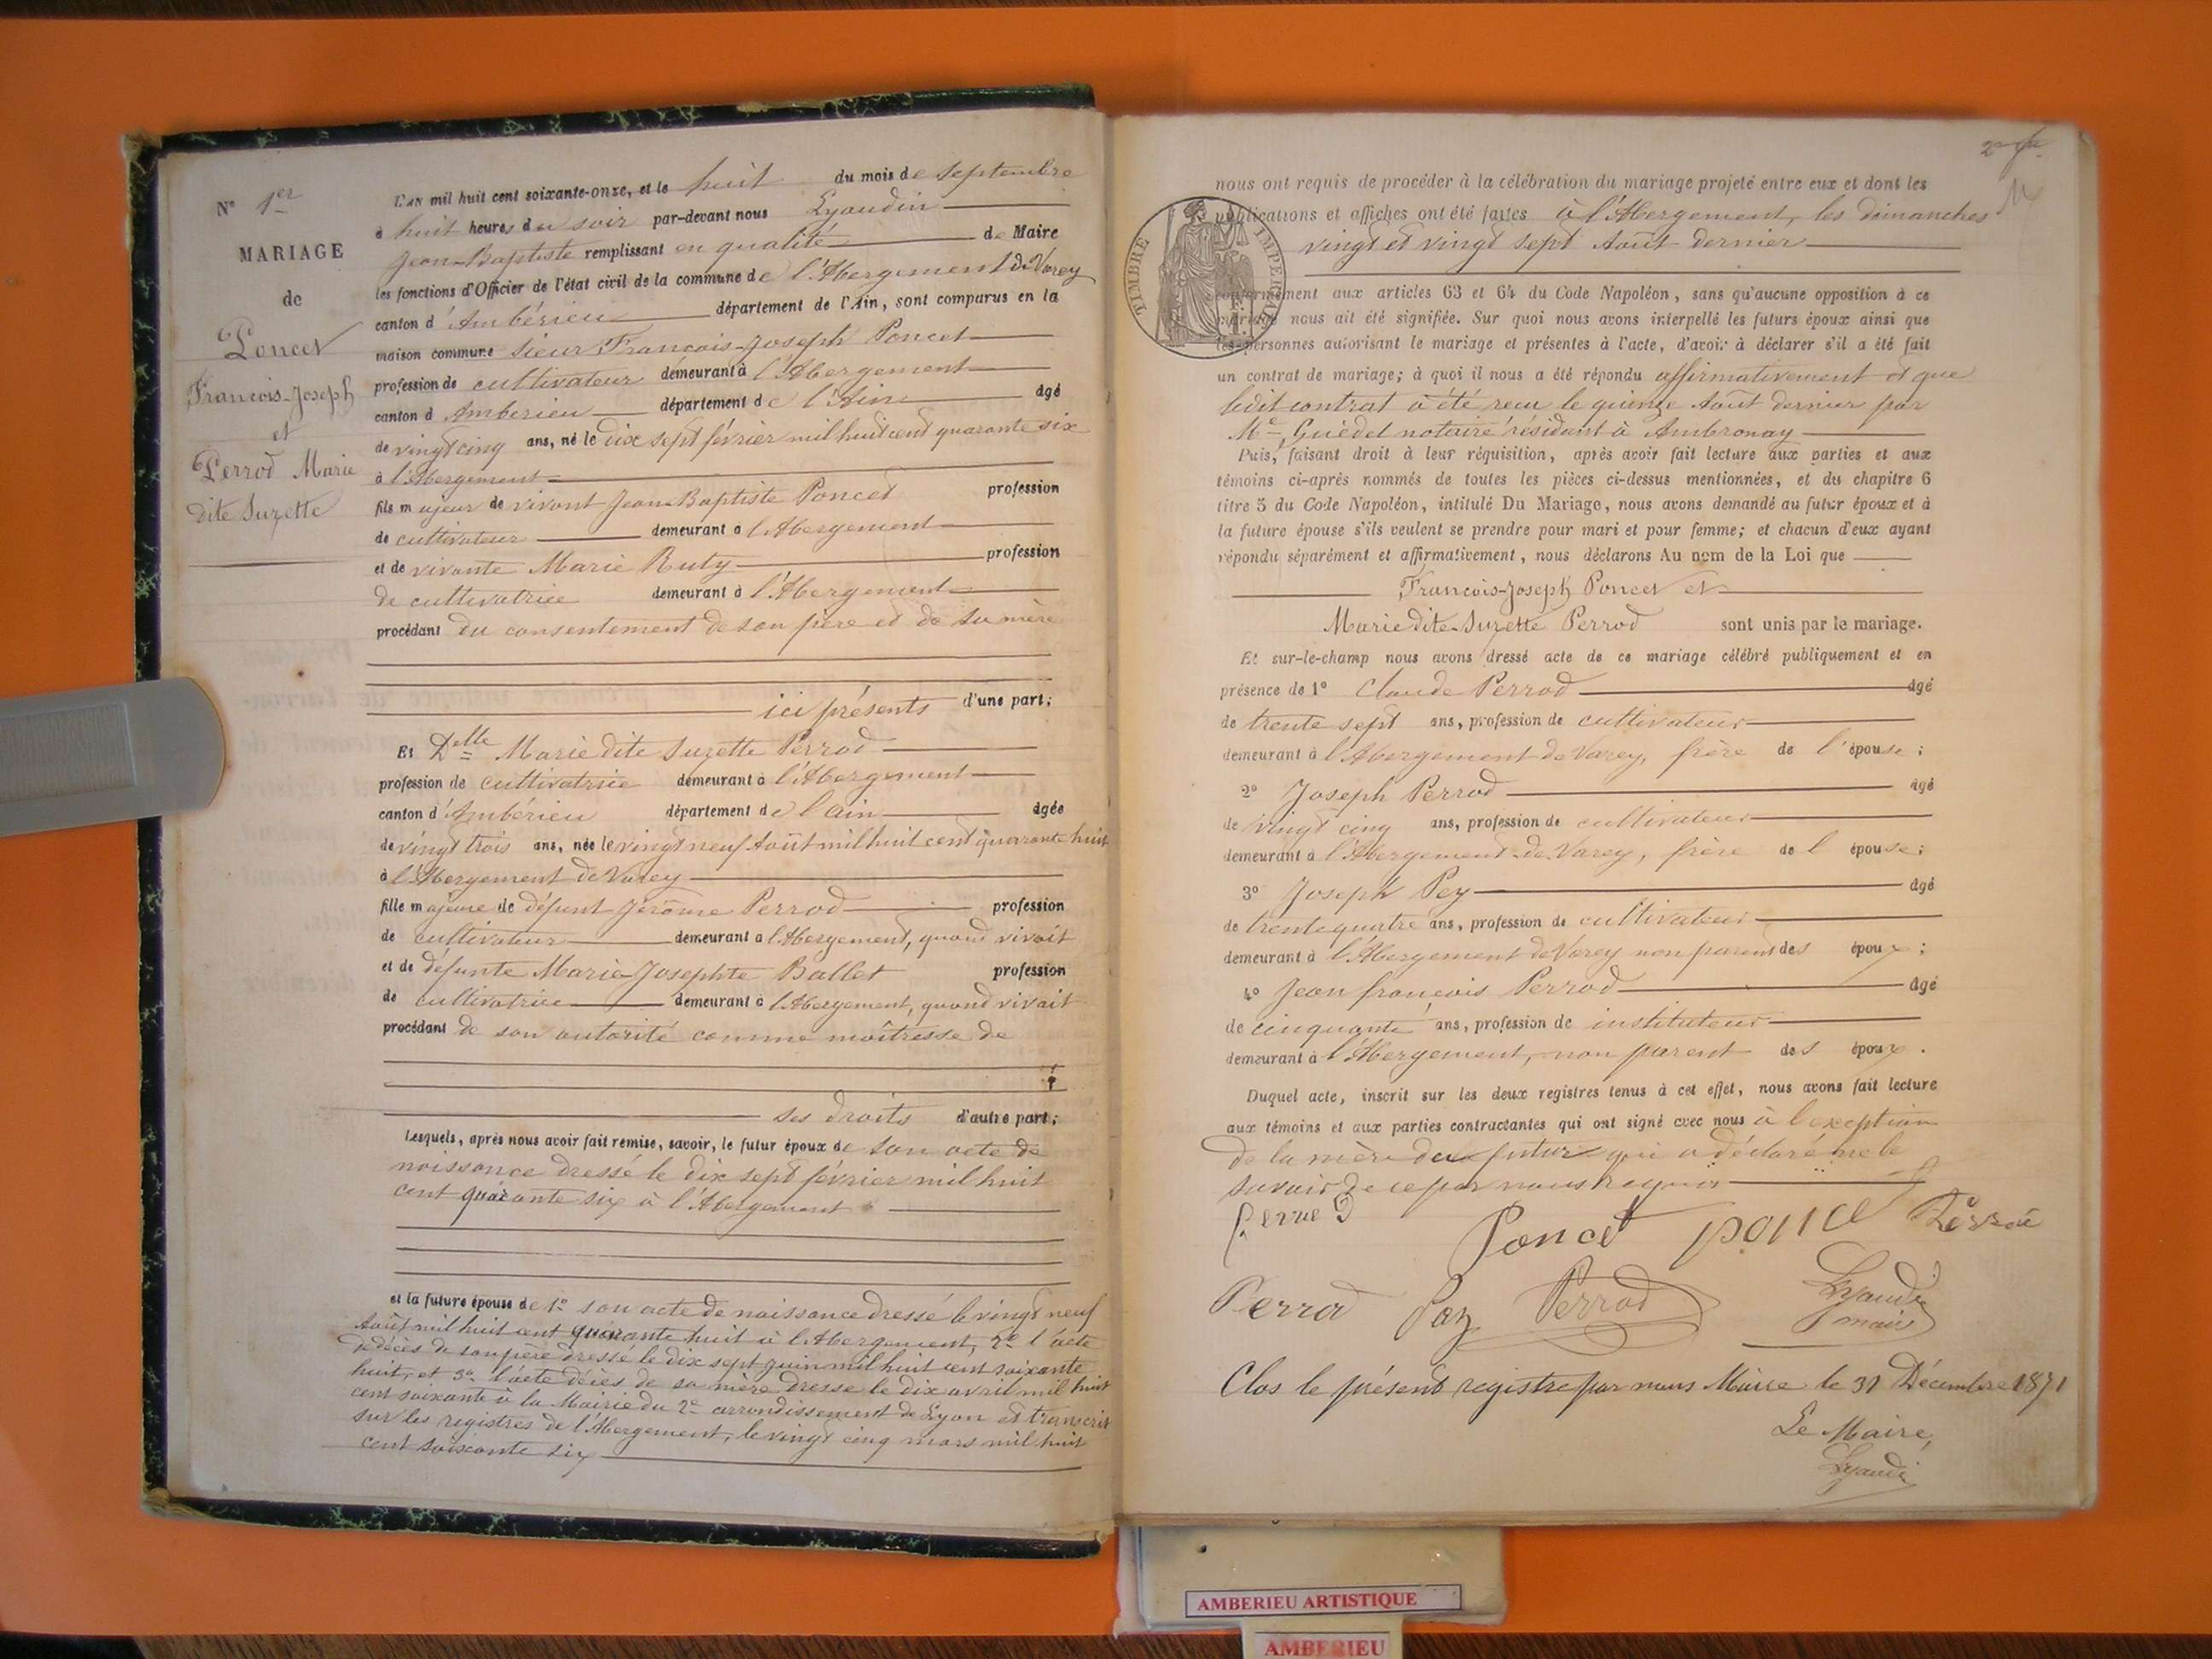 N° 1er
MARIAGE
de
Poncet
François-Joseph
et
Perrod Marie
dite Suzette
L'AN mil huit cent soixante-onze, et le huit du mois de septembre
à huit heures du soir par-devant nous Lyaudin
Jean-Baptiste remplissant en qualité de Maire
les fonctions d'Officier de l'état civil de la commune de l'Abergement de Varey
canton d'Ambérieu département de l'Ain, sont comparus en la
maison commune Sieur François-Joseph Poncet
profession de cultivateur demeurant à l'Abergement
canton d'Ambérieu département de l'Ain âgé
de vingt cinq ans, né le dix sept février mil huit cent quarante six
à l'Abergement
fils majeur de vivant Jean-Baptiste Poncet profession
de cultivateur demeurant à l'Abergement
et de vivante Marie Ruty profession
de cultivatrice demeurant à l'Abergement
procédant du consentement de son père et de sa mère
ici présents d'une part;
Et Delle Marie dite Suzette Perrod
profession de cultivatrice demeurant à l'Abergement
canton d'Ambérieu département de l'ain âgée
de vingt trois ans, née le vingt neuf Août mil huit cent quarante huit
à l'Abergement de Varey
fille majeure de défunt Jérôme Perrod profession
de cultivateur demeurant à l'Abergement, quand vivait
et de défunte Marie-Josephte Ballet profession
de cultivatrice demeurant à l'Abergement, quand vivait
procédant de son autorité comme maîtresse de
ses droits d'autre part;
Lesquels, après nous avoir fait remise, savoir, le futur époux de son acte de
naissance dressé le dix sept février mil huit
cent quarante six à l'Abergement
et la future épouse de 1° son acte de naissance dressé le vingt neuf
Août mil huit cent quarante huit à l'Abergement, 2° l'acte
de décès de son père dressé le dix sept juin mil huit cent soixante
huit, et 3° l'acte décès de sa mère dressé le dix avril mil huit
cent soixante à la Mairie du 2e arrondissement de Lyon et transcrit
sur les registres de l'Abergement, le vingt cinq mars mil huit
cent soixante six
nous ont requis de procéder à la célébration du mariage projeté entre eux et dont les
publications et affiches ont été faites à l'Abergement, les dimanches
vingt et vingt sept Août dernier
TIMBRE IMPERIAL
conformément aux articles 63 et 64 du Code Napoléon, sans qu'aucune opposition à ce
mariage nous ait été signifiée. Sur quoi nous avons interpellé les futurs époux ainsi que
les personnes autorisant le mariage et présentes à l'acte, d'avoir à déclarer s'il a été fait
un contrat de mariage; à quoi il nous a été répondu affirmativement et que
ledit contrat a été reçu le quinze Août dernier par
Me Guédel notaire résidant à Ambronay
Puis, faisant droit à leur réquisition, après avoir fait lecture aux parties et aux
témoins ci-après nommés de toutes les pièces ci-dessus mentionnées, et du chapitre 6
titre 5 du Code Napoléon, intitulé Du Mariage, nous avons demandé au futur époux et à
la future épouse s'ils veulent se prendre pour mari et pour femme; et chacun d'eux ayant
répondu séparément et affirmativement, nous déclarons Au nom de la Loi que
François-Joseph Poncet et
Marie dite-Suzette Perrod sont unis par le mariage.
Et sur-le-champ nous avons dressé acte de ce mariage célébré publiquement et en
présence de 1° Claude Perrod âgé
de trente sept ans, profession de cultivateur
demeurant à l'Abergement de Varey, frère de l'épouse;
2° Joseph Perrod âgé
de vingt cinq ans, profession de cultivateur
demeurant à l'Abergement de Varey, frère de l'épouse;
3° Joseph Pey âgé
de trente quatre ans, profession de cultivateur
demeurant à l'Abergement de Varey non parent des époux;
4° Jean françois Perrod âgé
de cinquante ans, profession de instituteur
demeurant à l'Abergement, non parent des époux.
Duquel acte, inscrit sur les deux registres tenus à cet effet, nous avons fait lecture
aux témoins et aux parties contractantes qui ont signé avec nous à l'exception
de la mère du futur qui a déclaré ne le
savoir de ce par nous requis
Poncet
Perrod
Perrod
Lyaudin
maire
Clos le présent registre par nous Maire le 31 Décembre 1871
Le Maire,
Lyaudin
AMBERIEU ARTISTIQUE
AMBERIEU